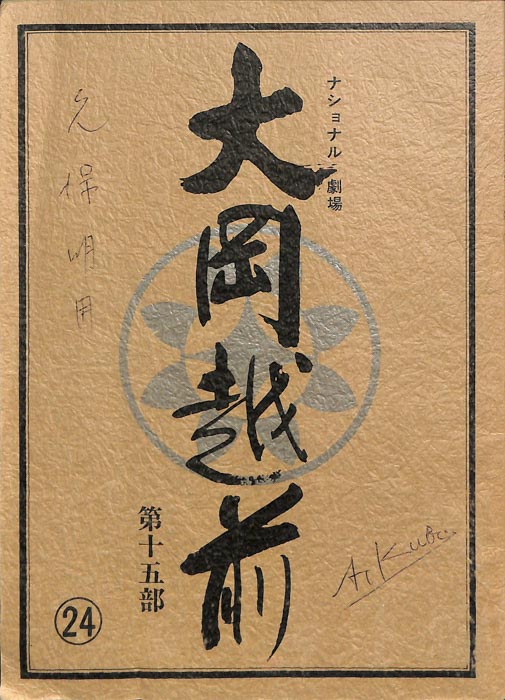 ナショナル劇場
大岡越前
第十五部
24
久保明用
A. Kubo